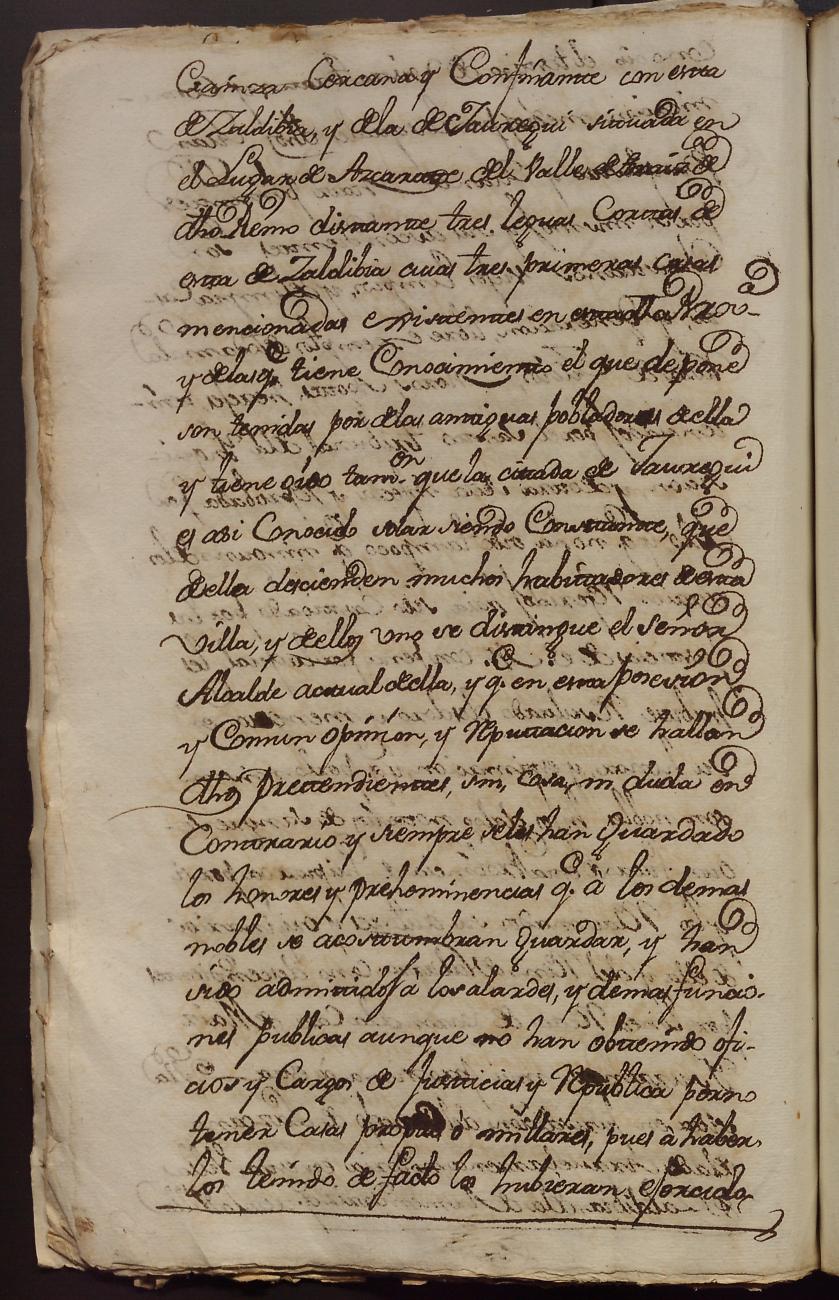 Gainza Cercana y Confinante con esta
de Zaldibia, y dela de Jauregui situada en
el Lugar de Azcarate del Valle de Araiz de
dho Reino distante tres leguas Cortas de
esta de Zaldibia cuias tres primeras casas
mencionadas existentes en esta dha Prov.
y delas q.e tiene Conocimiento el que depone
son tenidas por delas antiguas pobladoras della
y tiene oido tam.on que la citada de Jauregui
es asi Conocido solar siendo Constante, que
della descienden muchos habitadores de esta
Villa, y dellos uno se distingue el señor
Alcalde actual della, y q.e en esta posesion
y Comun opinion, y Reputacion se hallan
dhos prettendientes, sin, cosa, ni duda en
Contrario y siempre seles han guardado
los honores y prehominencias q.e a los demas
nobles se acostumbran guardar, y han
sido admittidos a los alardes, y demas funcio-
nes publicas aunque no han obtenido ofi-
cios y Cargos de Justicias y Republica por no
tener Casas propias o millares, pues a haber
los tenido de facto los hubieran esercido